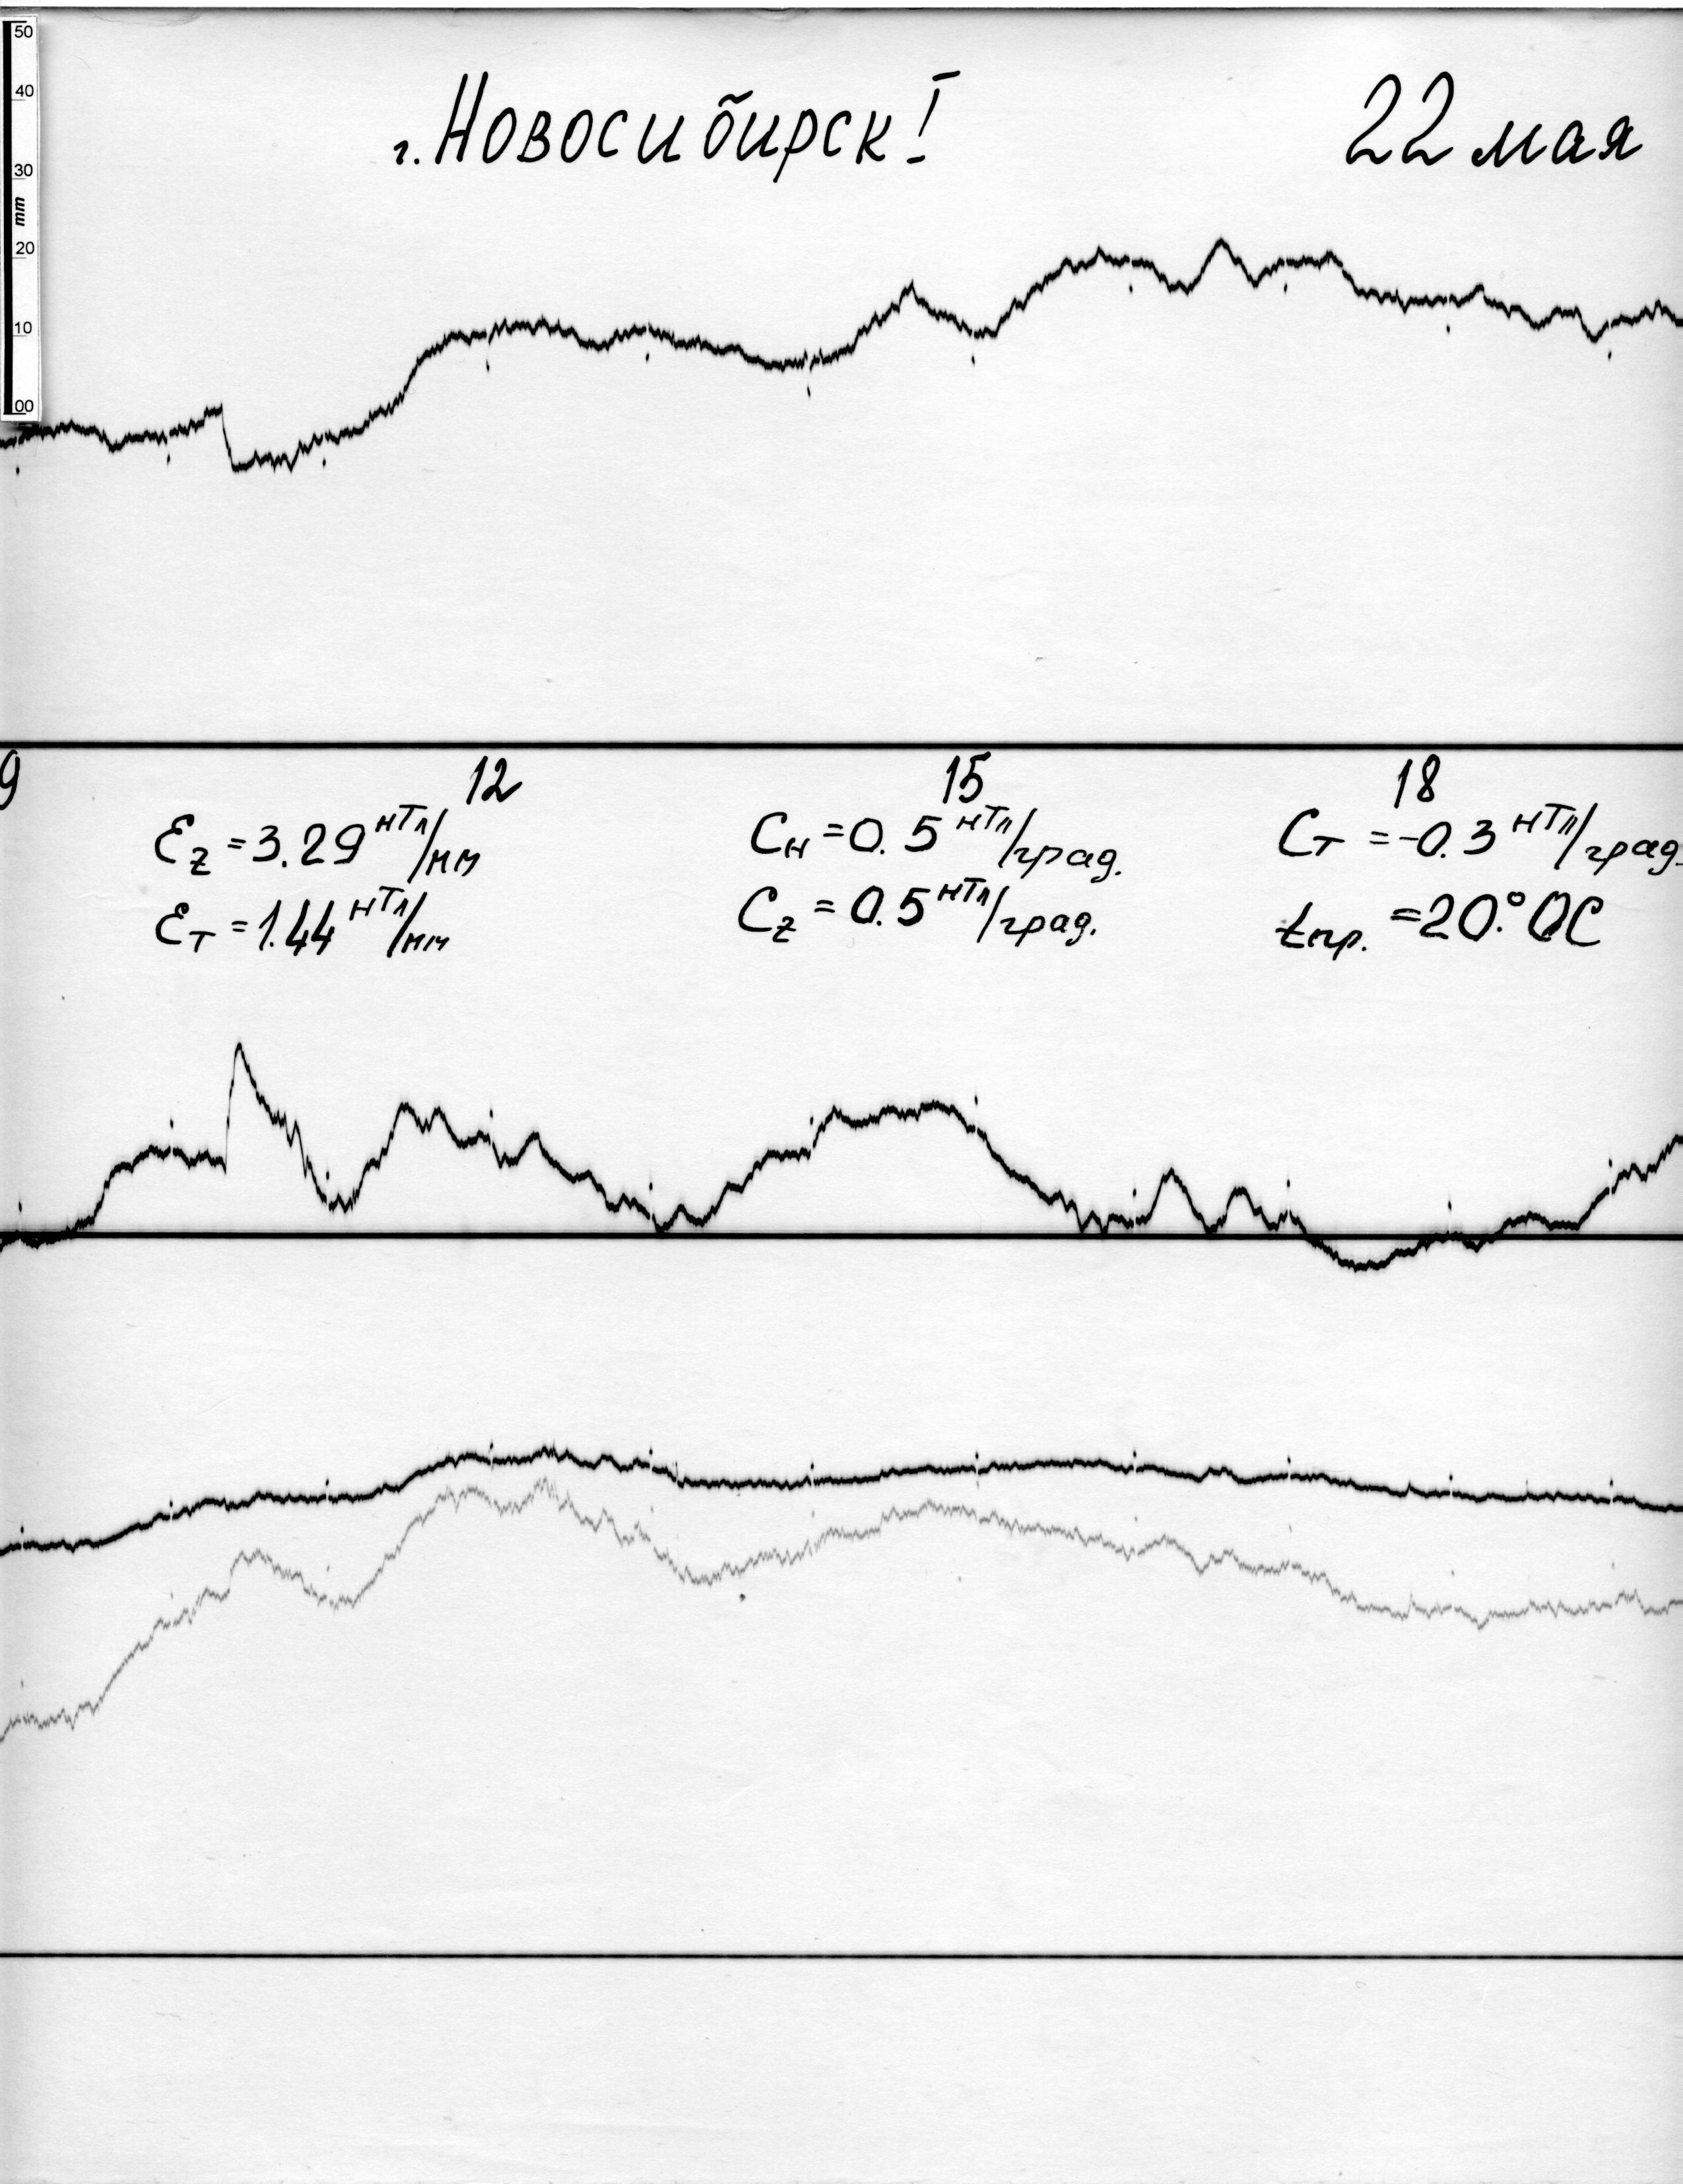 50
40
30
mm
20
10
00
г. Новосибирск I
22 мая
9 12 15 18
Ɛz = 3.29 нТл/мм
Ɛт = 1.44 нТл/мм
Cн = 0.5 нТл/град.
Cz = 0.5 нТл/град.
Cт = -0.3 нТл/град.
tпр. = 20.°0C